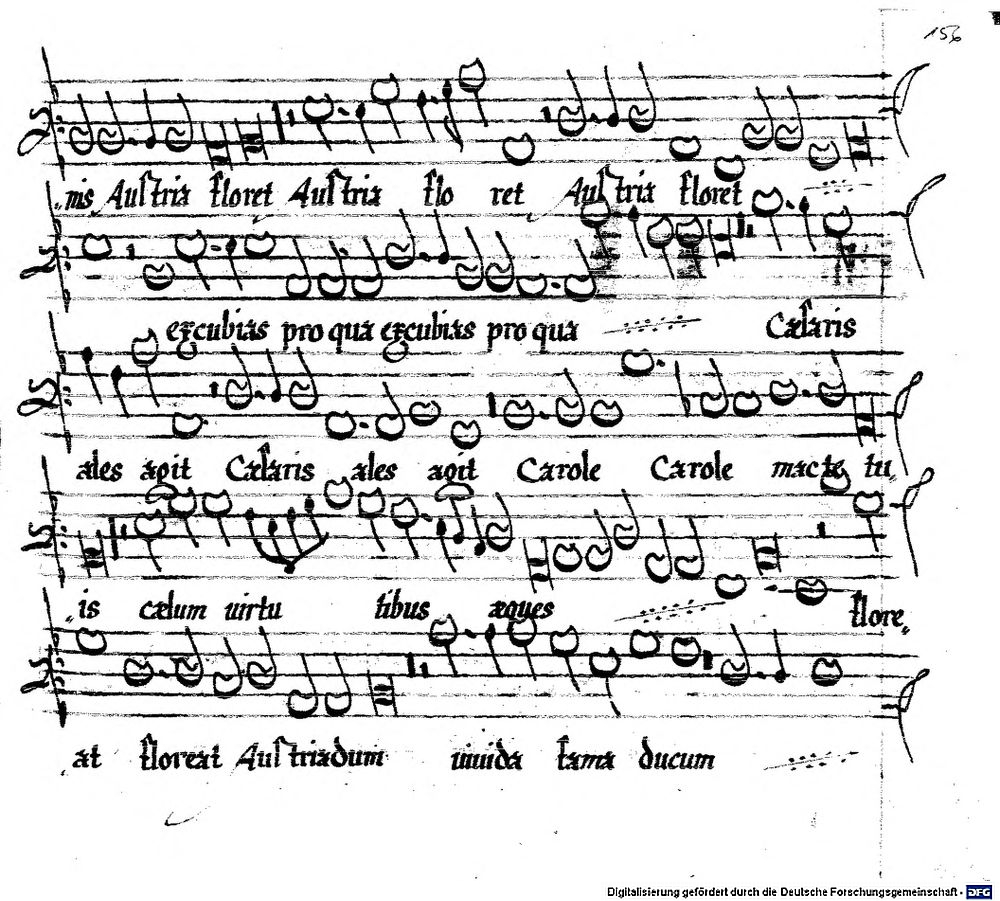 156
nis Austria floret Austria flo ret Austria floret
excubias pro qua excubias pro qua Cæsaris
ales agit Cæsaris ales agit Carole Carole macte tu
is cælum uirtu tibus æques flore
at floreat Austriadum uiuida fama ducum
Digitalisierung gefördert durch die Deutsche Forschungsgemeinschaft - DFG